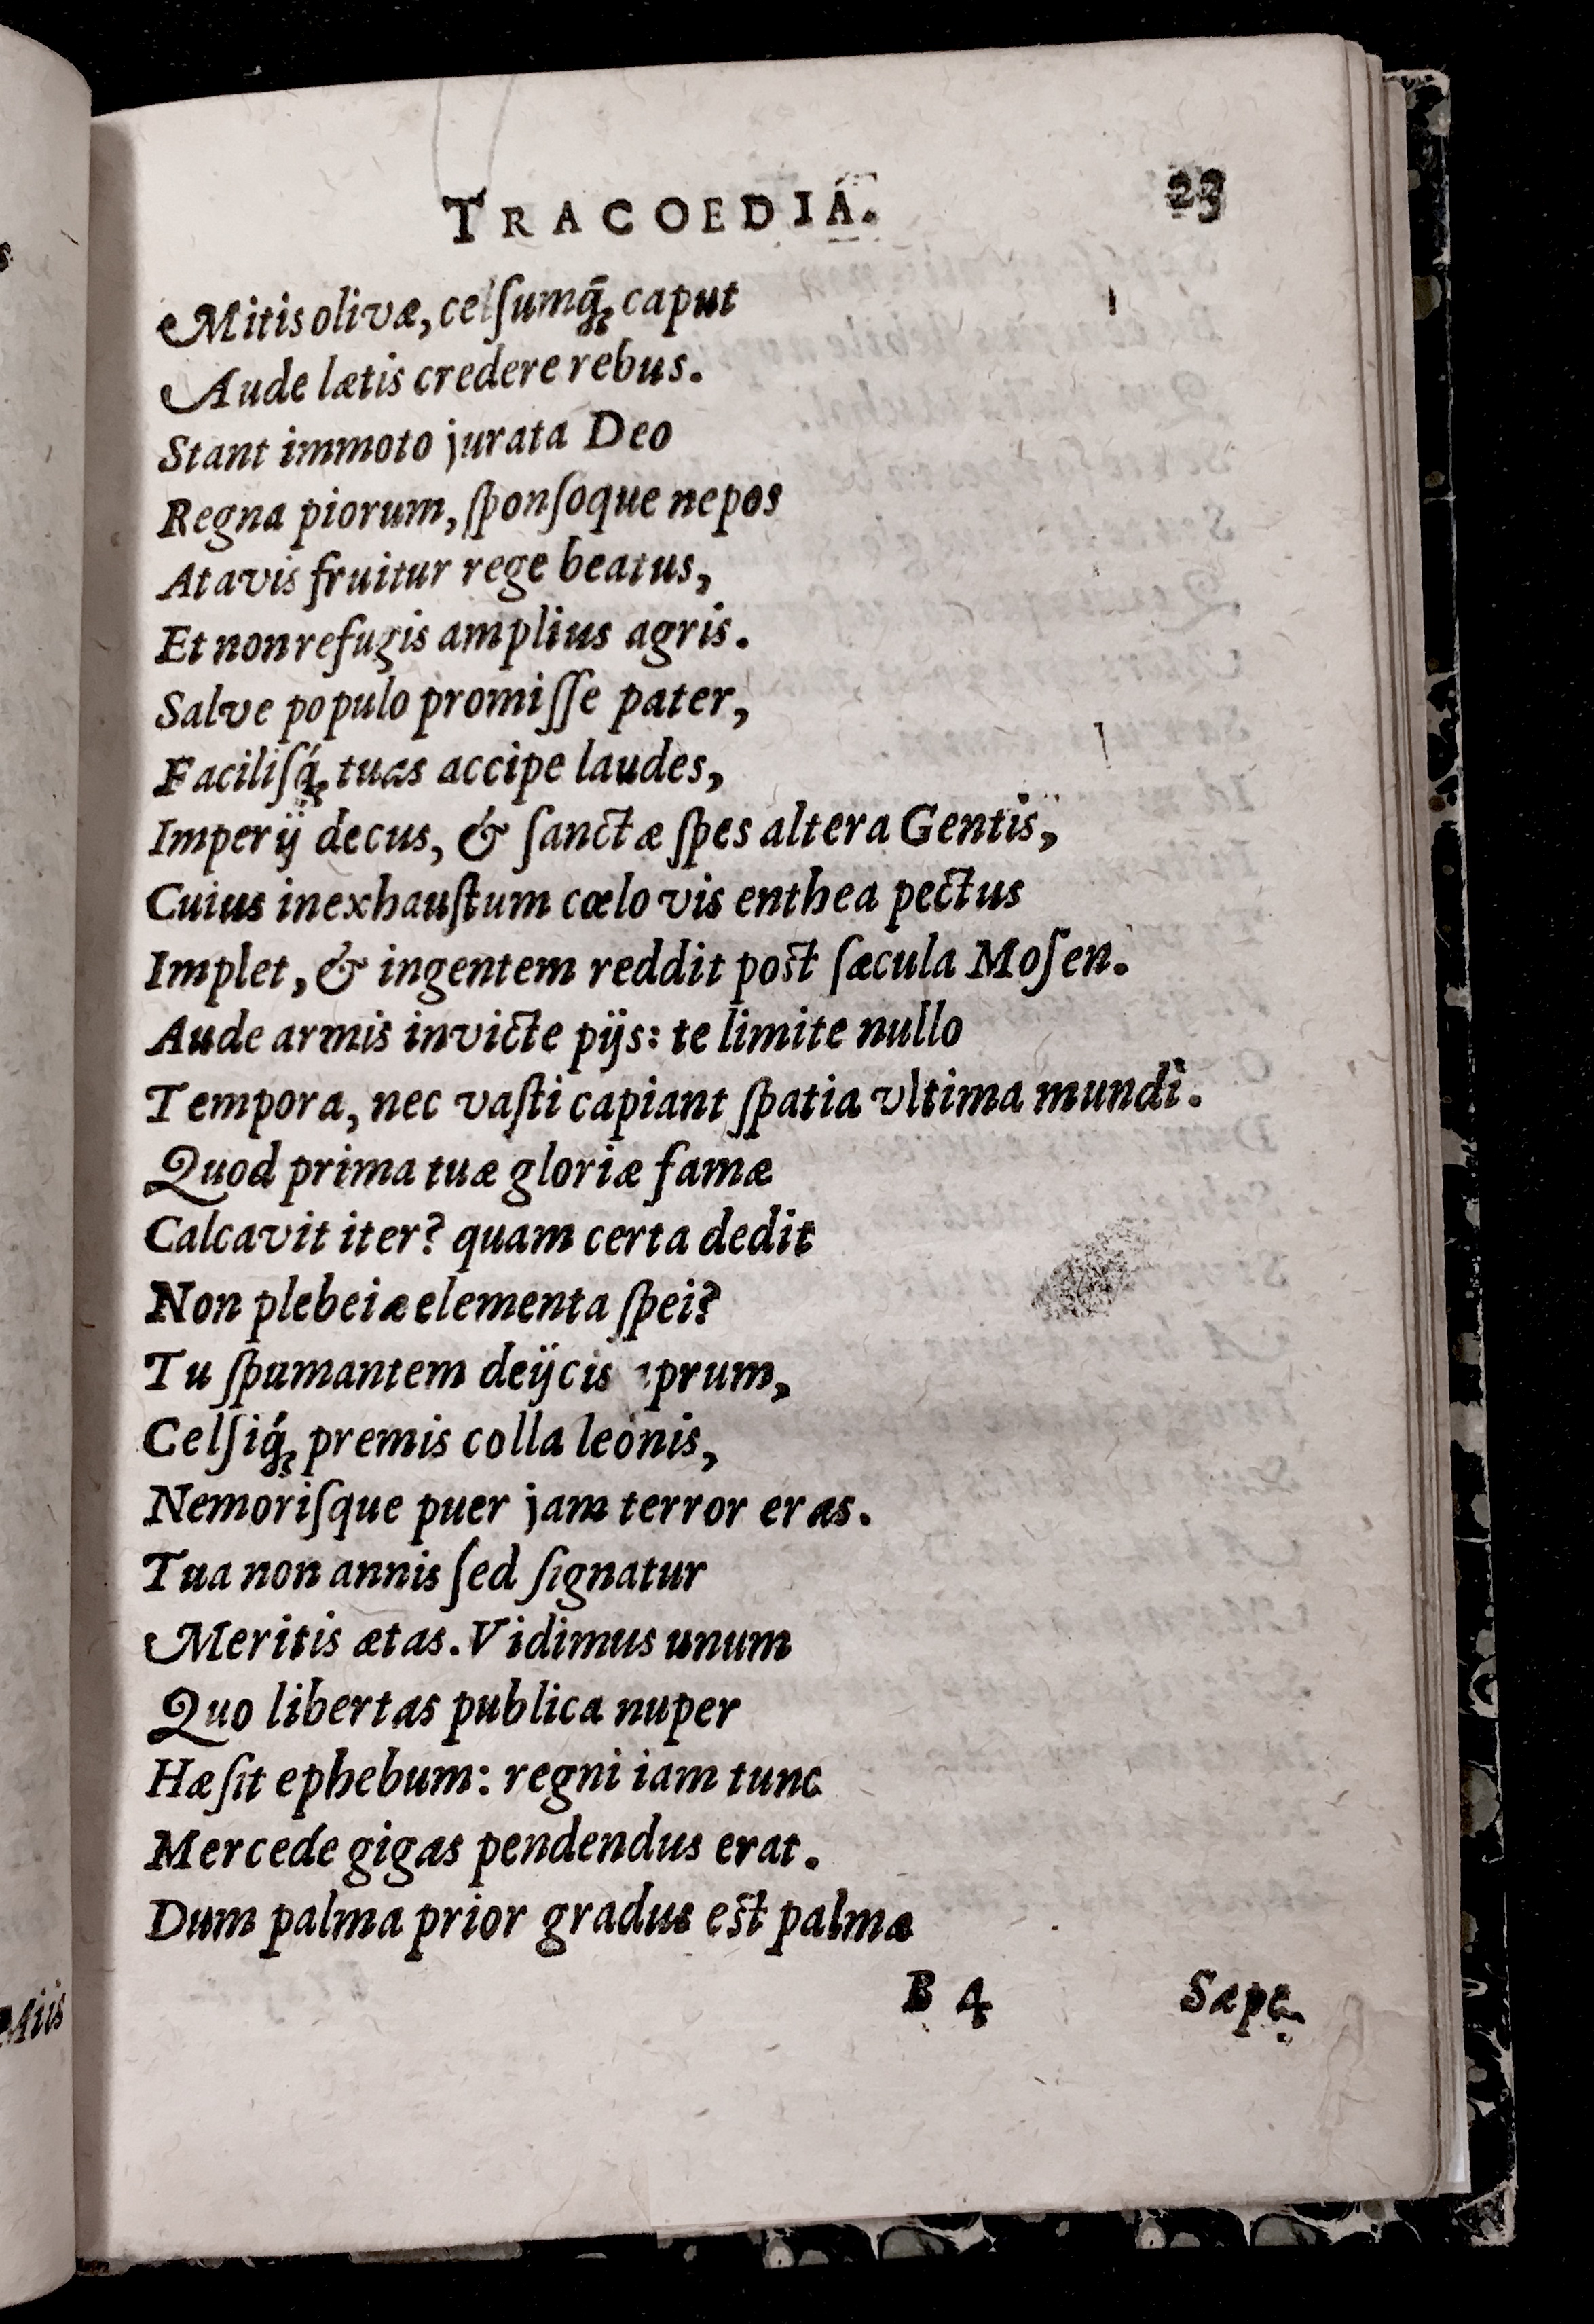 TRACOEDIA. 23
Mitis olivæ, celſumq́ꝫ caput
Aude lætis credere rebus.
Stant immoto jurata Deo
Regna piorum, ſponſoque nepos
Atavis fruitur rege beatus,
Et non refugis amplius agris.
Salve populo promiſſe pater,
Faciliſq́ꝫ tuas accipe laudes,
Imperij decus, & ſanctæ ſpes altera Gentis,
Cuius inexhauſtum cœlo vis enthea pectus
Implet, & ingentem reddit post ſæcula Moſen.
Aude armis invicte pijs: te limite nullo
Tempora, nec vaſti capiant ſpatia vltima mundi.
Quod prima tuæ gloriæ famæ
Calcavit iter? quam certa dedit
Non plebeiæ elementa ſpei?
Tu ſpumantem deijcis aprum,
Celſiq́ꝫ premis colla leonis,
Nemoriſque puer jam terror eras.
Tua non annis ſed ſignatur
Meritis ætas. Vidimus unum
Quo libertas publica nuper
Hæſit ephebum: regni iam tunc
Mercede gigas pendendus erat.
Dum palma prior gradus est palmæ
B 4 Sæpe
Miis